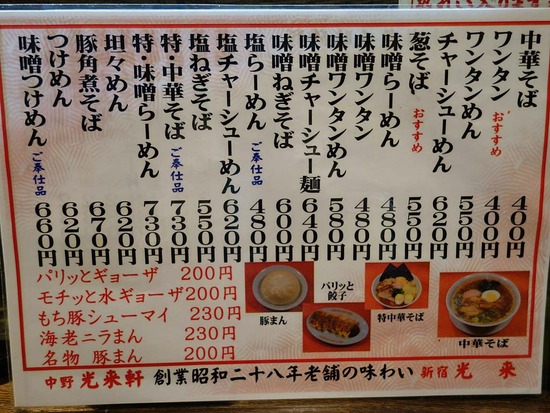 中華そば 400円
ワンタン おすすめ 400円
ワンタンめん 550円
チャーシューめん 620円
葱そば おすすめ 550円
味噌らーめん 480円
味噌ワンタン 480円
味噌ワンタンめん 580円
味噌チャーシュー麺 640円
味噌ねぎそば 600円
塩らーめん ご奉仕品 480円
塩チャーシューめん 620円
塩ねぎそば 550円
特・中華そば ご奉仕品 730円
特・味噌らーめん 730円
坦々めん 620円
豚角煮そば 670円
つけめん 620円
味噌つけめん ご奉仕品 660円
パリッとギョーザ 200円
モチッと水ギョーザ 200円
もち豚シューマイ 230円
海老ニラまん 230円
名物 豚まん 200円
豚まん
パリッと
餃子
特中華そば
中華そば
中野 光来軒 創業昭和二十八年老舗の味わい 新宿 光来